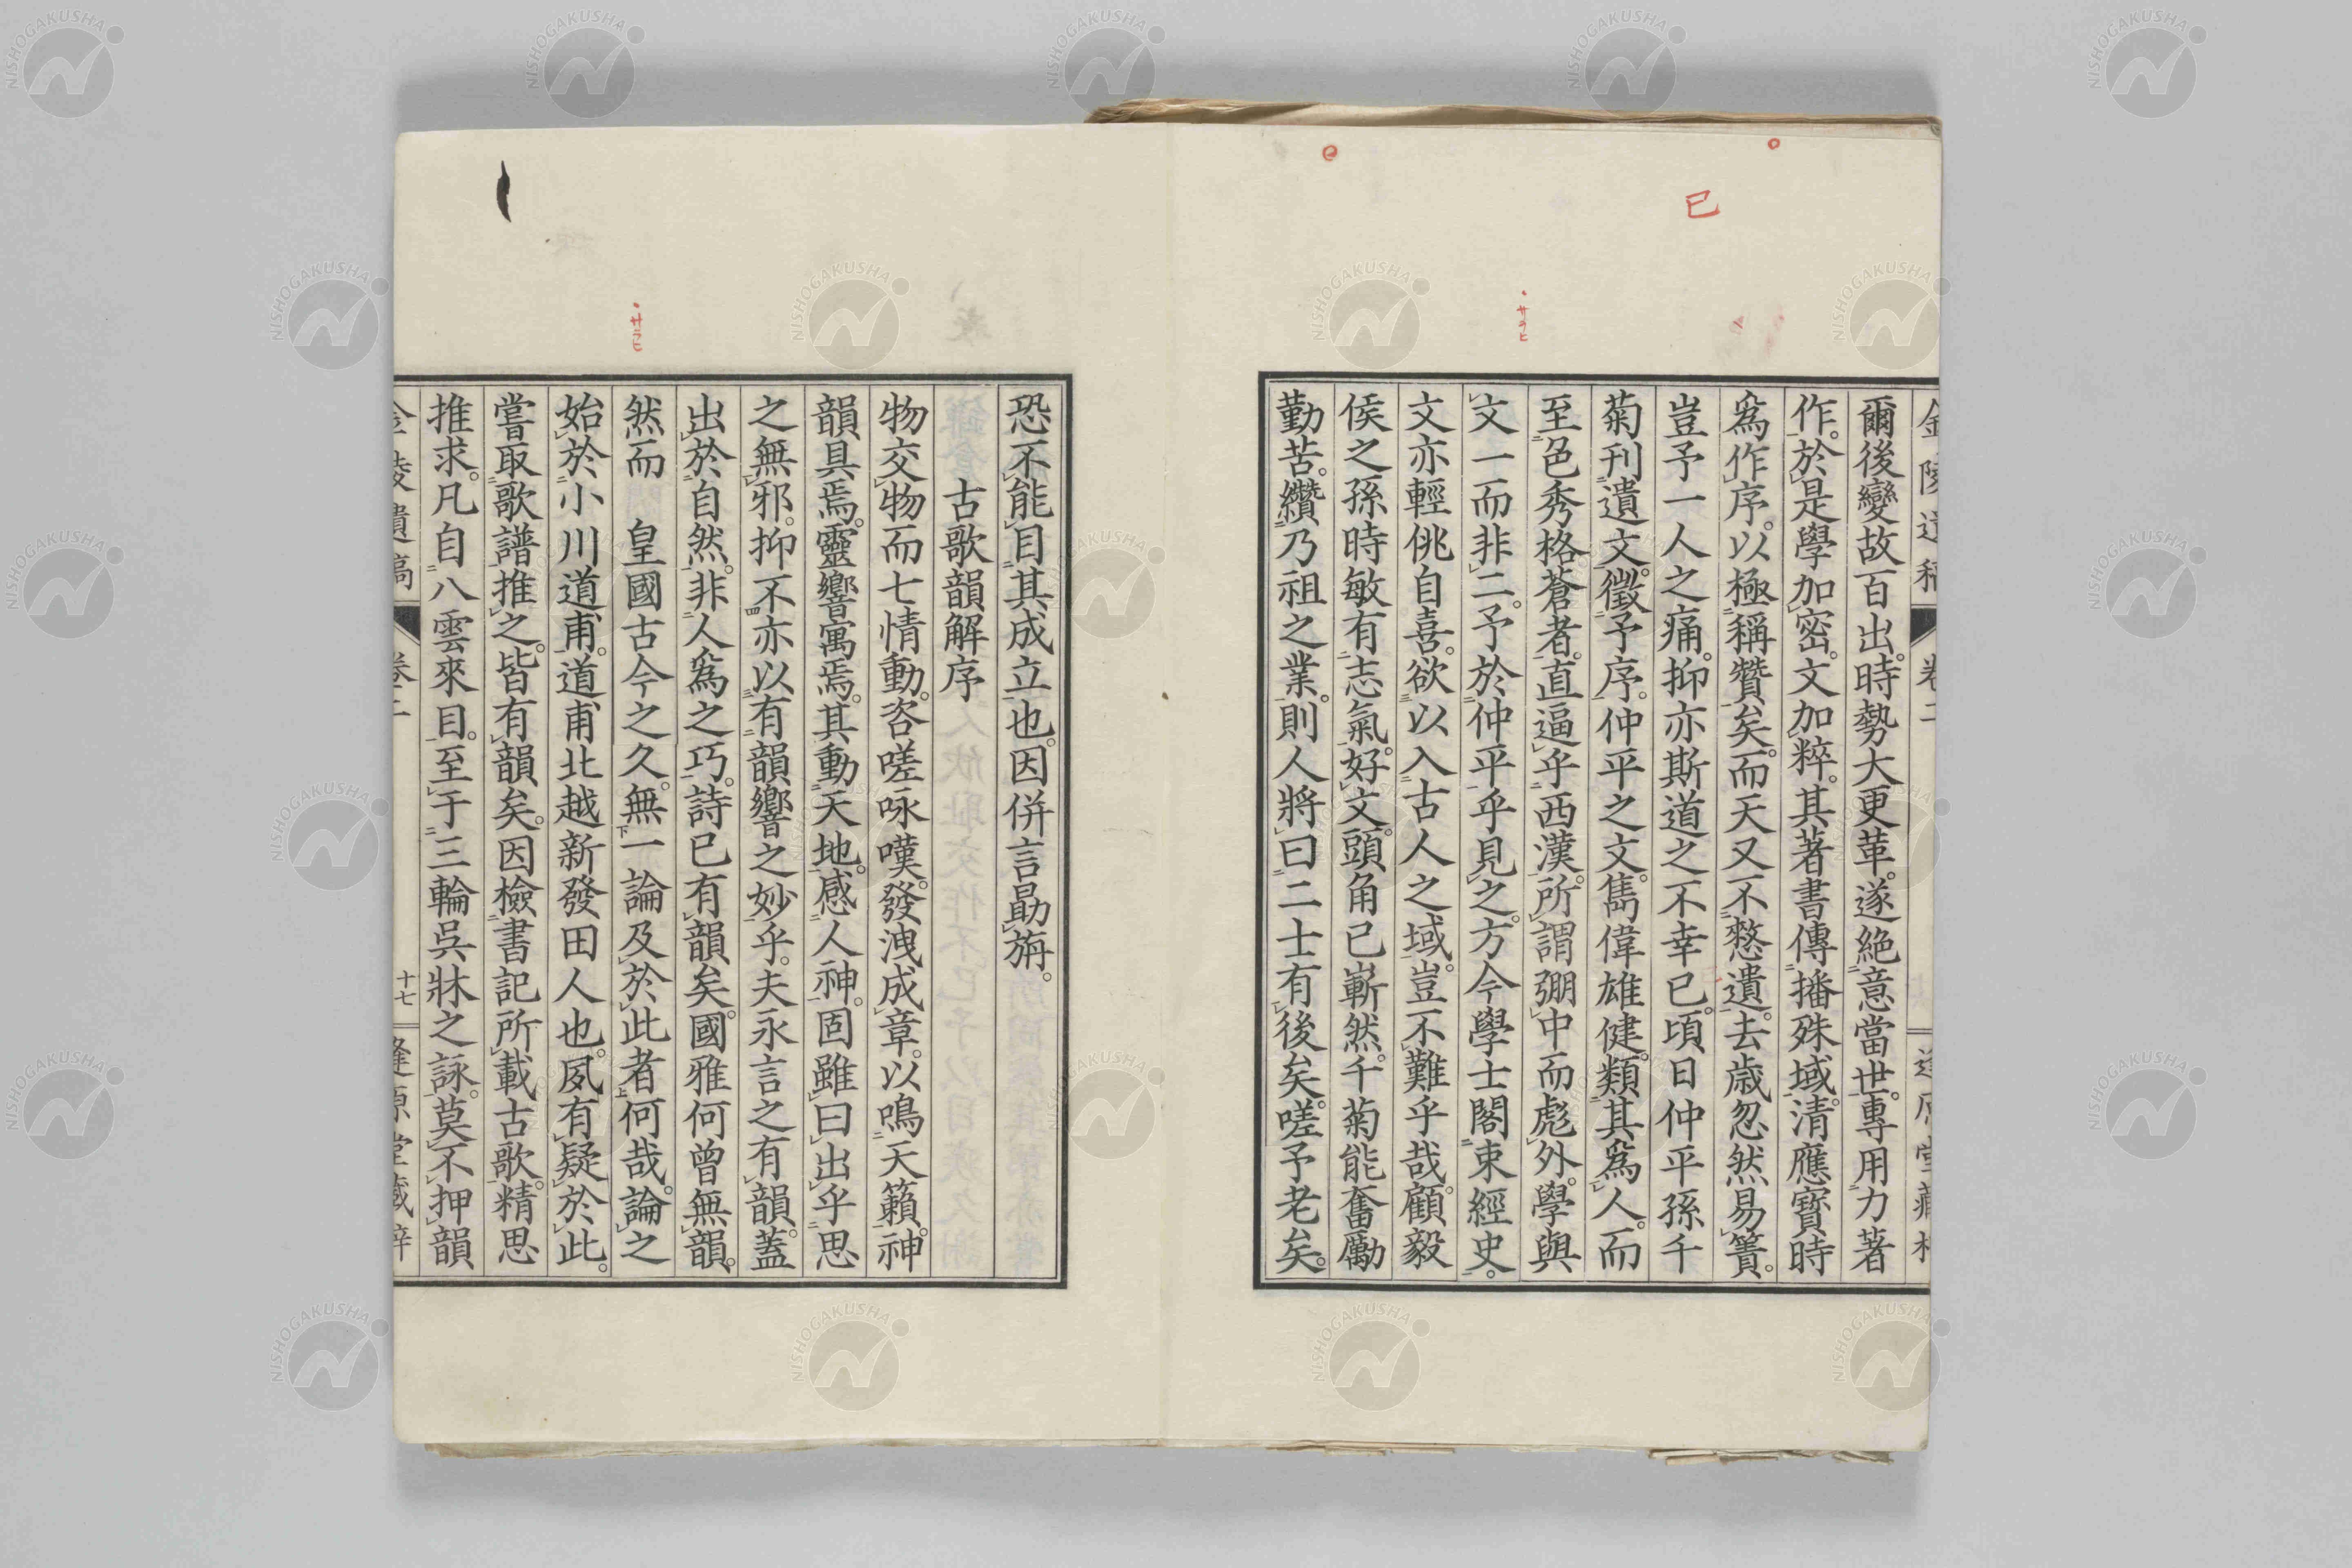 爾後變故百出。時勢大更革。遂絕意當世。專用力著
作。於是學加密。文加粹。其著書傳播殊域。清應寶時
爲作序。以極稱贊矣。而天又不憗遺。去歲忽然易簀。
豈予一人之痛。抑亦斯道之不幸已。頃日仲平孫千
菊刊遺文。徵予序。仲平之文。雋偉雄健。類其爲人。而
至色秀格蒼者。直逼乎西漢。所謂弸中而彪外。學與
文一而非二。予於仲平乎見之。方今學士閣束經史。
文亦輕佻自喜。欲以入古人之域。豈不難乎哉。顧毅
侯之孫時敏有志氣。好文。頭角已嶄然。千菊能奮勵
勤苦。纘乃祖之業。則人將曰二士有後矣。嗟予老矣。
恐不能目其成立也。因併言勗旃。
古歌韻解序
物交物而七情動。咨嗟咏嘆。發洩成章。以鳴天籟。神
韻具焉。靈響寓焉。其動天地。感人神。固雖曰出乎思
之無邪。抑不亦以有韻響之妙乎。夫永言之有韻。蓋
出於自然。非人爲之巧。詩已有韻矣。國雅何曾無韻。
然而 皇國古今之久。無一論及於此者何哉。論之
始於小川道甫。道甫北越新發田人也。夙有疑於此。
嘗取歌譜推之。皆有韻矣。因檢書記所載古歌。精思
推求。凡自八雲來目。至于三輪吳牀之詠。莫不押韻
卷二
十七
已
NISHOGAKUSHA